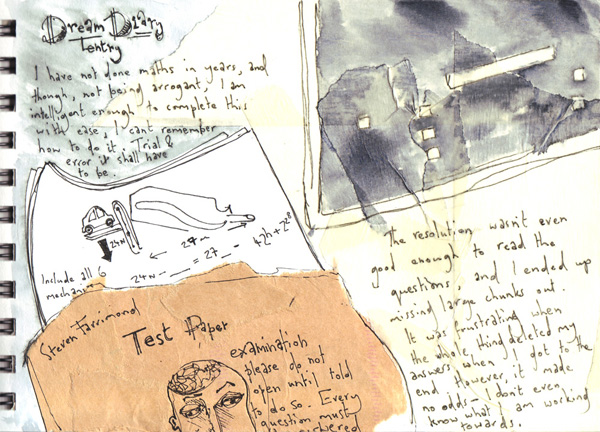 Dream Diary
1entry
I have not done maths in years, and
though, not being arrogant, I am
intelligent enough to complete this
with ease, I cant remember
how to do it. Trial &
error it shall have
to be.
24N
27m
Include all 6
24N - = 27 -
Steven Farrimond
Test Paper
examination
please do not
open until told
to do so. Every
question must
The resolution wasn't even
good enough to read the
questions, and I ended up
missing large chunks out.
It was frustrating when
the whole thing deleted my
answers when I got to the
end. However, it made
no odds - I don't even
know what I am working
towards.